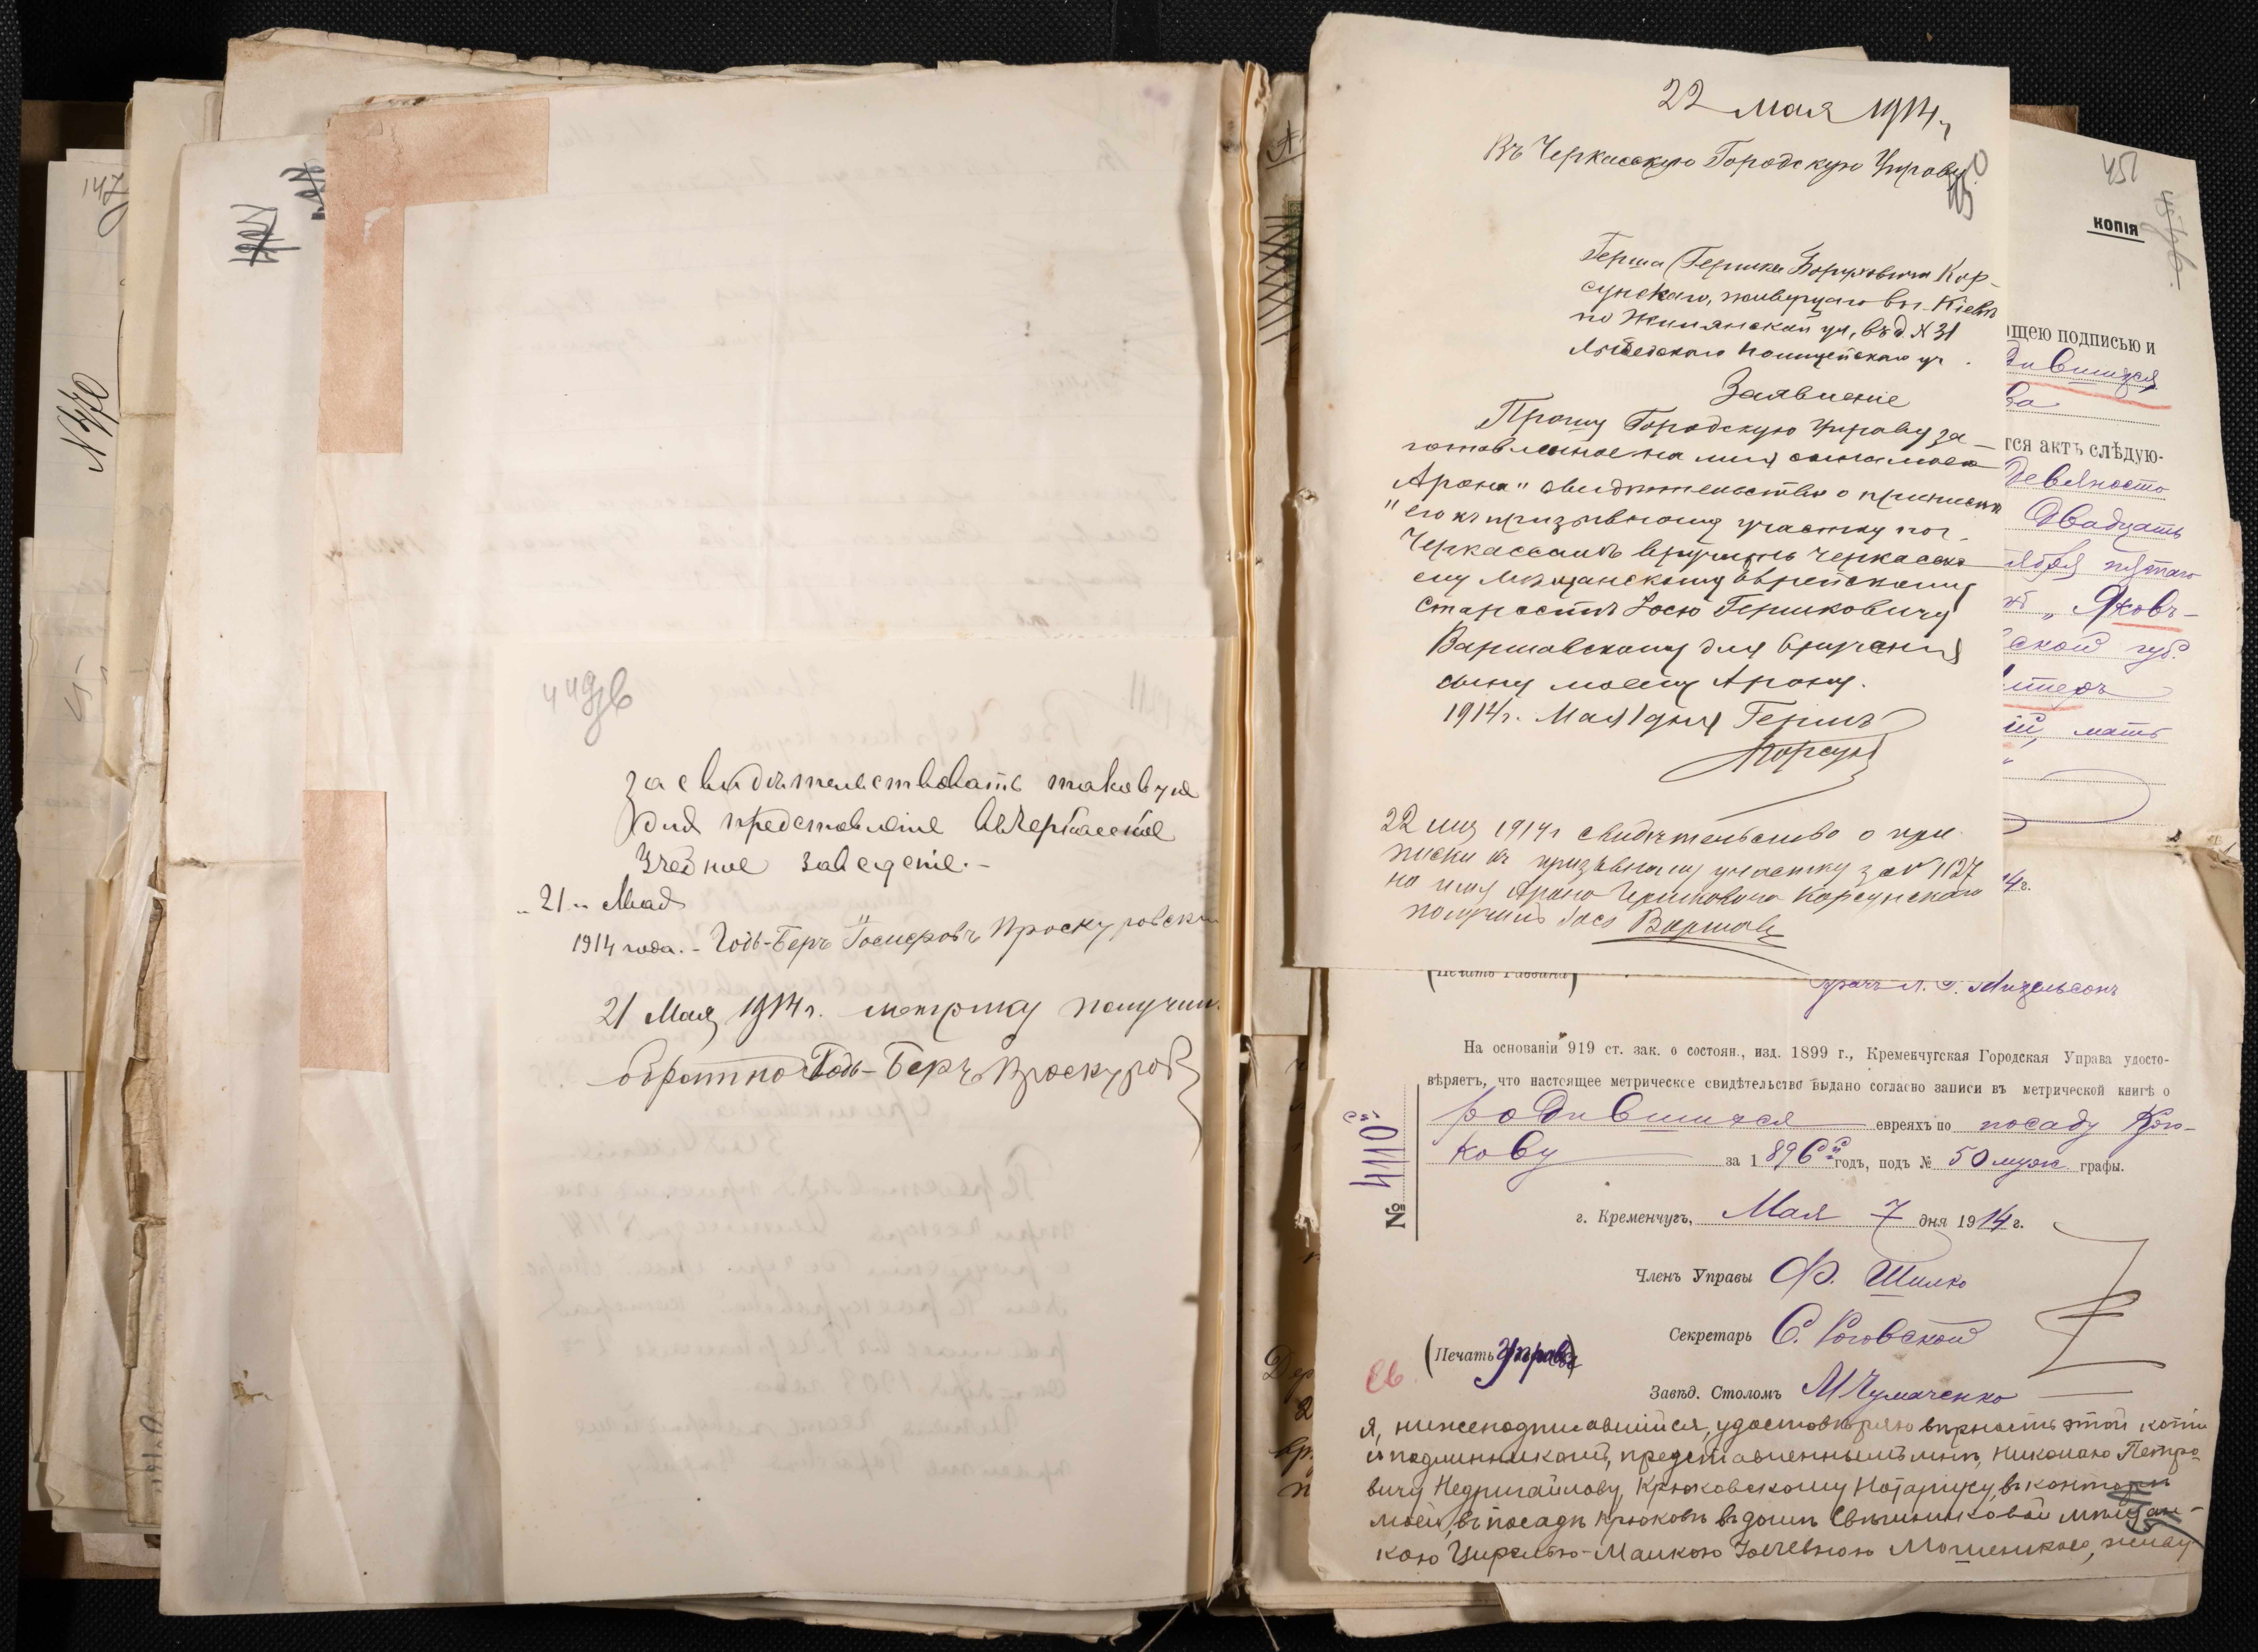 147
N 770
449об
засвидѣтельствовать таковую
для представленiе въ Черкасское
Учебное заведенiе.-
"21" Мая
1914 года. - Годь-Беръ Iосiеровъ Проскуровскi
21 Мая 1914 г. метрику получил
обратно Годь-Беръ Проскуров
22 мая 1914 г
450
Въ Черкасскую Городскую Управу.
Герша (Гершка Боруховича Кор-
сунскаго, живущаго въ г. Кiевѣ
по Жилянской ул, въ д. N 31
Лыбедскаго полицейскаго уч.
Заявленiе
Прошу Городскую Управу за-
готовленное на имя сына моего
Арона" свидѣтельство о припискѣ
"его къ призывному участку по г.
Черкассамъ вручить Черкасско
му Мѣщанскому Еврейскому
Старостѣ Iосю Гершковичу
Варшавскому для врученiя
сыну моему Арону.
1914 г. Мая 1 дня Гершъ
Корсун
22 мая 1914 г свидѣтельство о при
писки къ призывному участку за N 1127
на имя Арона Гершковича Корсунскаго
получилъ Iось Варшав
451
КОПIЯ
щею подписью и
дившихся
ва
тся актъ слѣдую-
девяносто
двадцать
ября пятаго
" Яковъ-
ской губ.
iй, мать
14 г.
(Печать Раввина)
врачъ Л.
На основанiи 919 ст. зак. о состоян., изд. 1899 г., Кременчугская Городская Управа удосто-
вѣряетъ, что настоящее метрическое свидѣтельство выдано согласно записи въ метрической книгѣ о
родившихся евреяхъ по посаду Крю-
кову за 1896й годъ, подъ № 50 муж. графы.
№ 4110
г. Кременчугъ, Мая 7 дня 1914 г.
Членъ Управы Ф. Шилко
Секретарь С. Роговской
(Печать Управы)
Завѣд. Столомъ М Чумаченко
Я, нижеподписавшiйся, удостовѣряю вѣрность этой копiи
съ подлинникомъ, представленнымъ мнѣ, Николаю Петро-
вичу Недригайлову, Крюковскому Нотарiусу, въ конторѣ
моей, въ посадѣ Крюковѣ въ домѣ Свѣшниковой мѣщан-
кою Цирелью-Малкою, живу